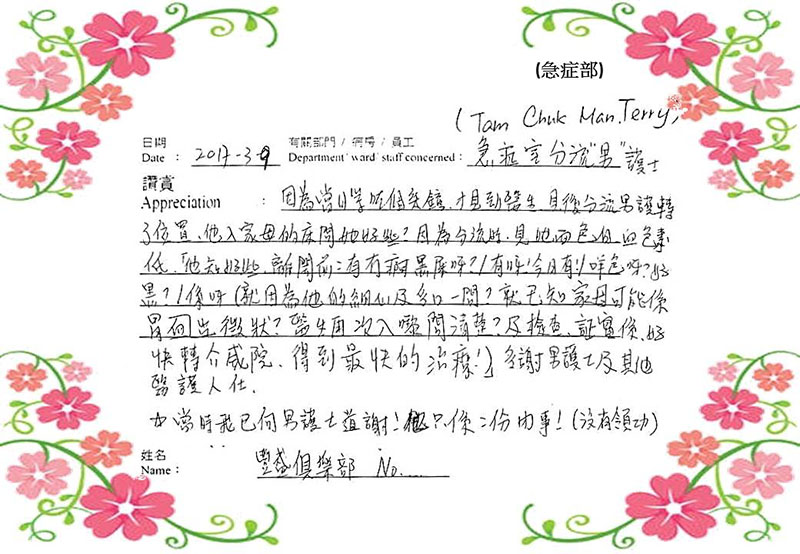 (急症部)
(Tam Chuk Man, Terry)
日期 有關部門 / 病房 / 員工
Date : 2017-3-9 Department/ward/staff concerned : 急症室分流"男"護士
讚賞
Appreciation : 因為當日 見到醫生, 其後分流男護轉
了位置、他入家母的床問她好些? 因為分流時, 見她面色 血色素
低, 他知好些, 離開前: 有冇痾黑屎呀? / 有呀! 今日有! / 咩色呀? 好
黑? / 係呀 (就因為他的細心及多口一問? 就已知家母可能係
胃 出徵狀? 醫生再次入嚟問清楚? 及檢查、証實係、好
快轉介威院、得到最快的治療!) 多謝男護士及其他
醫護人仕.
當時我已向男護士道謝! 他只係: 份內事! (沒有領功)
姓名
Name : 豐盛俱樂部 No.......